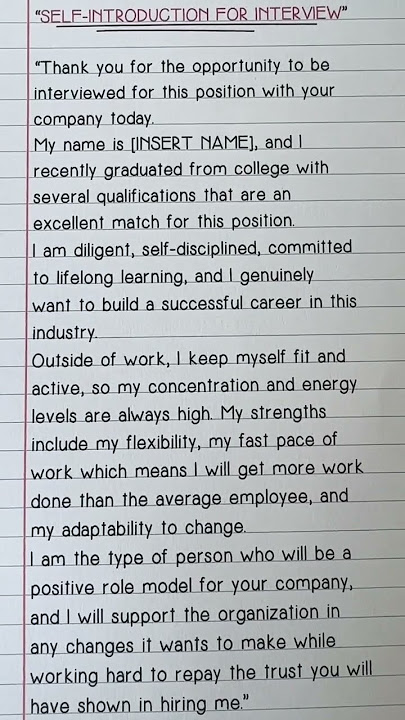 "SELF-INTRODUCTION FOR INTERVIEW"
"Thank you for the opportunity to be
interviewed for this position with your
company today.
My name is [INSERT NAME], and I
recently graduated from college with
several qualifications that are an
excellent match for this position.
I am diligent, self-disciplined, committed
to lifelong learning, and I genuinely
want to build a successful career in this
industry.
Outside of work, I keep myself fit and
active, so my concentration and energy
levels are always high. My strengths
include my flexibility, my fast pace of
work which means I will get more work
done than the average employee, and
my adaptability to change.
I am the type of person who will be a
positive role model for your company,
and I will support the organization in
any changes it wants to make while
working hard to repay the trust you will
have shown in hiring me."